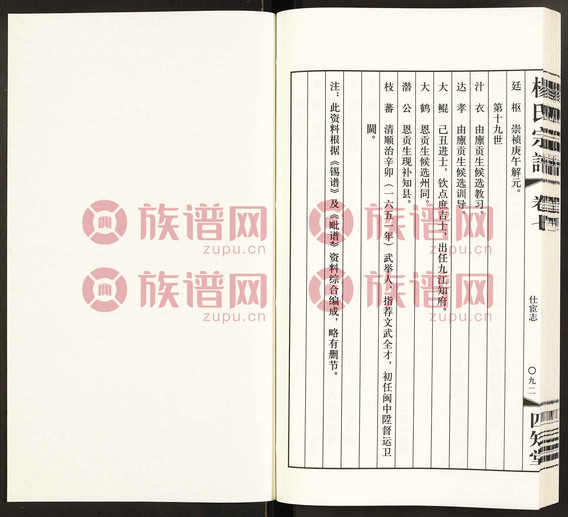 杨氏宗谱
卷七
仕宦志
〇九二
四知堂
廷枢 崇祯庚午解元。
第十九世
汁衣 由廪贡生候选教习。
达孝 由廪贡生候选训导。
大鲲 己丑进士，钦点庶吉士，出任九江知府。
大鹤 恩贡生候选州同。
潜公 恩贡生现补知县。
枝蕃 清顺治辛卯（一六五一年）武举人，指荐文武全才，初任闽中陞督运卫
闑。
注：此资料根据《锡谱》及《毗谱》资料综合编成，略有删节。
族谱网
zupu.cn
族谱网
zupu.cn
族谱网
zupu.cn
族谱网
zupu.cn